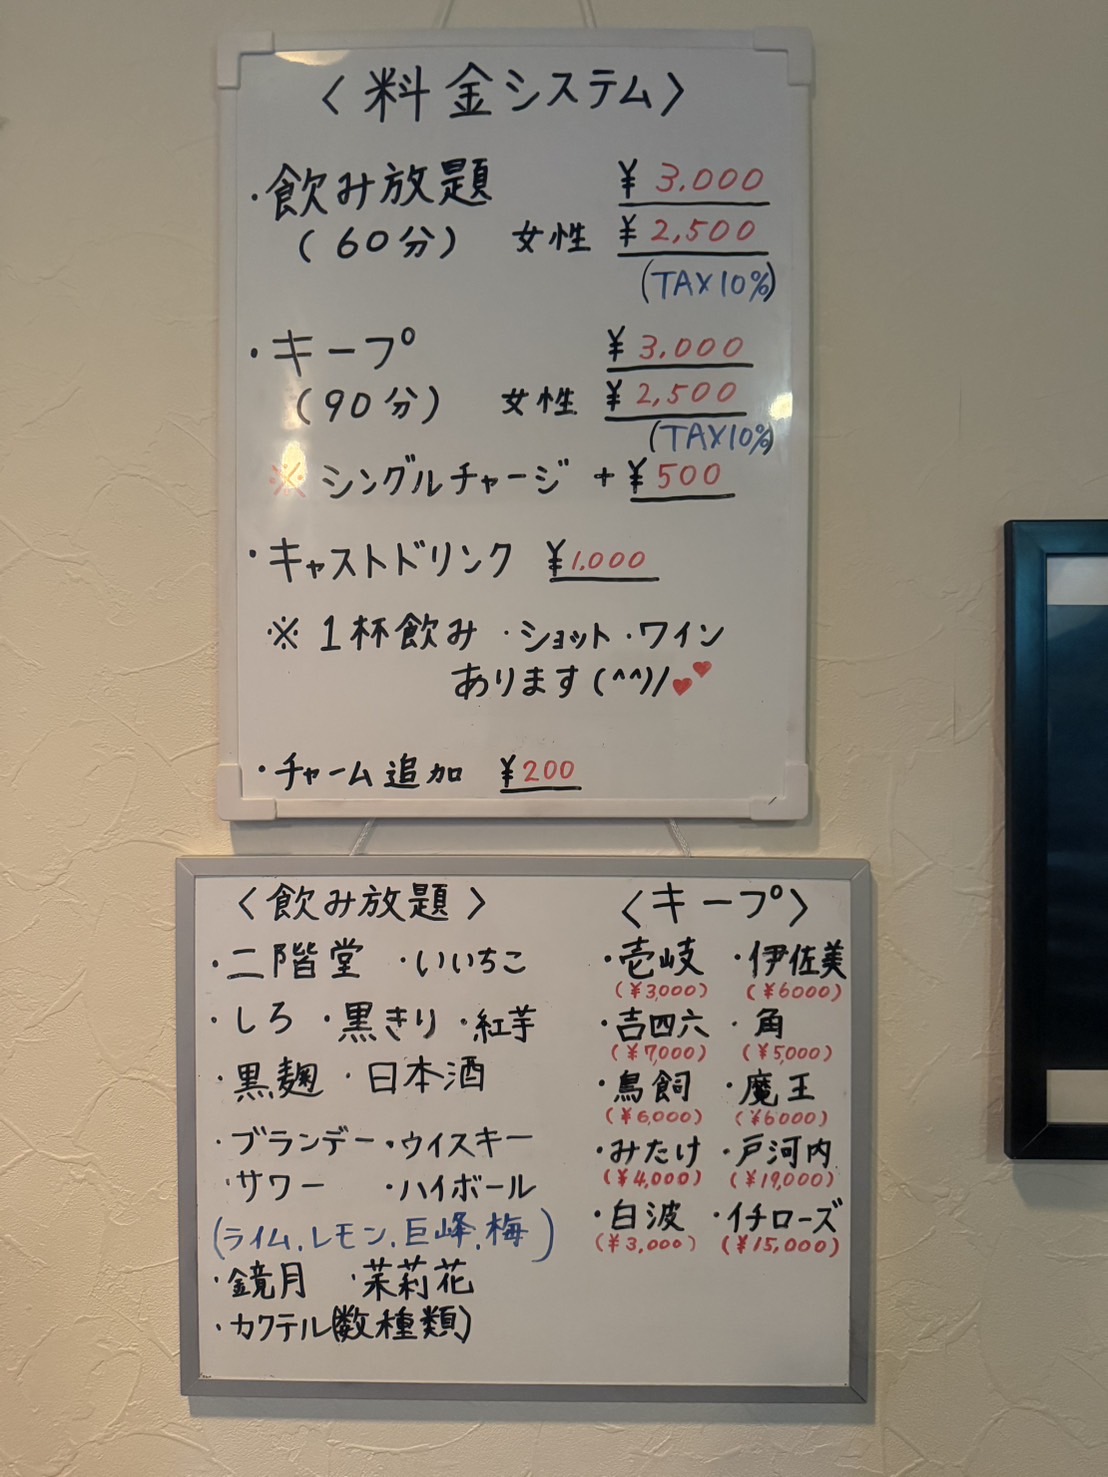 〈料金システム〉
・飲み放題 ¥3,000
(60分) 女性 ¥2,500
(TAX10%)
・キープ ¥3,000
(90分) 女性 ¥2,500
(TAX10%)
※シングルチャージ +¥500
・キャストドリンク ¥1,000
※1杯飲み・ショット・ワイン
あります(^^)/
・チャーム追加 ¥200
〈飲み放題〉
・二階堂 ・いいちこ
・しろ ・黒きり ・紅芋
・黒麹 ・日本酒
・ブランデー・ウイスキー
・サワー ・ハイボール
(ライム,レモン,巨峰,梅)
・鏡月 ・茉莉花
・カクテル(数種類)
〈キープ〉
・壱岐 ・伊佐美
(¥3,000) (¥6000)
・吉四六 ・角
(¥7,000) (¥5,000)
・鳥飼 ・魔王
(¥6,000) (¥6000)
・みたけ ・戸河内
(¥4,000) (¥19,000)
・白波 ・イチローズ
(¥3,000) (¥15,000)